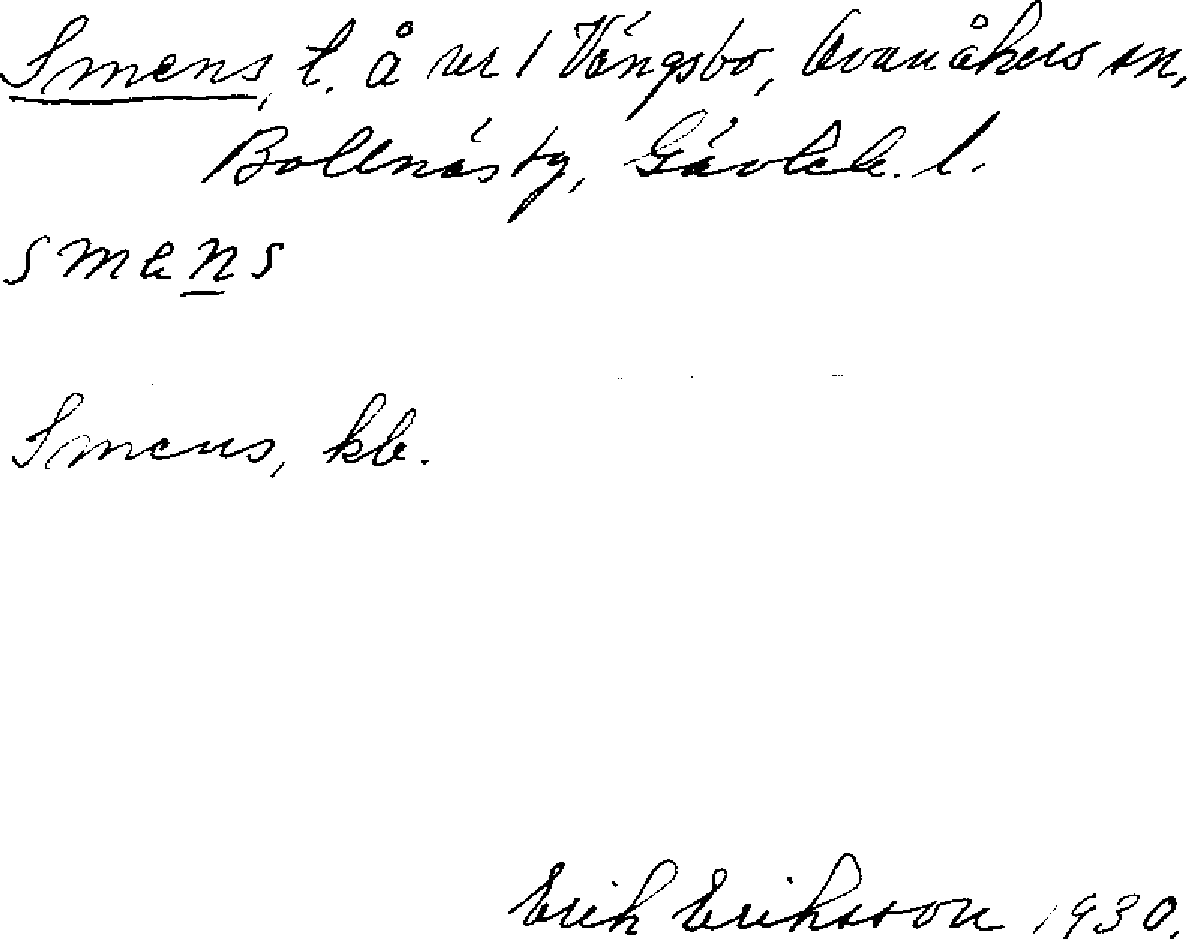 Smens, t. å nr 1 Vängsbo, Ovanåkers sn,
Bollnäs tg, Gävleb. l.
smens
Smens, kb.
Erik Eriksson 1930.